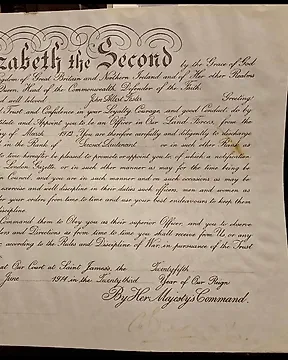 zabeth the Second by the Grace of God
ngdom of Great Britain and Northern Ireland and of Her other Realms
Queen, Head of the Commonwealth, Defender of the Faith.
d well beloved John Albert Greeting:
l Trust and Confidence in your Loyalty, Courage, and good Conduct, do by
stitute and Appoint you to be an Officer in Our Land Forces, from the
y of March 19 You are therefore carefully and diligently to discharge
in the Rank of Second Lieutenant or in such other Rank as
to time hereafter be pleased to promote or appoint you to, of which a notification
London Gazette, or in such other manner as may for the time being be
n Council, and you are in such manner and on such occasions as may be
exercise and well discipline in their duties such officers, men and women as
er your orders from time to time and use your best endeavours to keep them
discipline.
Command them to Obey you as their superior Officer, and you to observe
ders and Directions as from time to time you shall receive from Us, or any
, according to the Rules and Discipline of War, in pursuance of the Trust
at Our Court at Saint James's, the Twentyfifth
June 1974, in the Twentythird Year of Our Reign
By Her Majesty's Command.